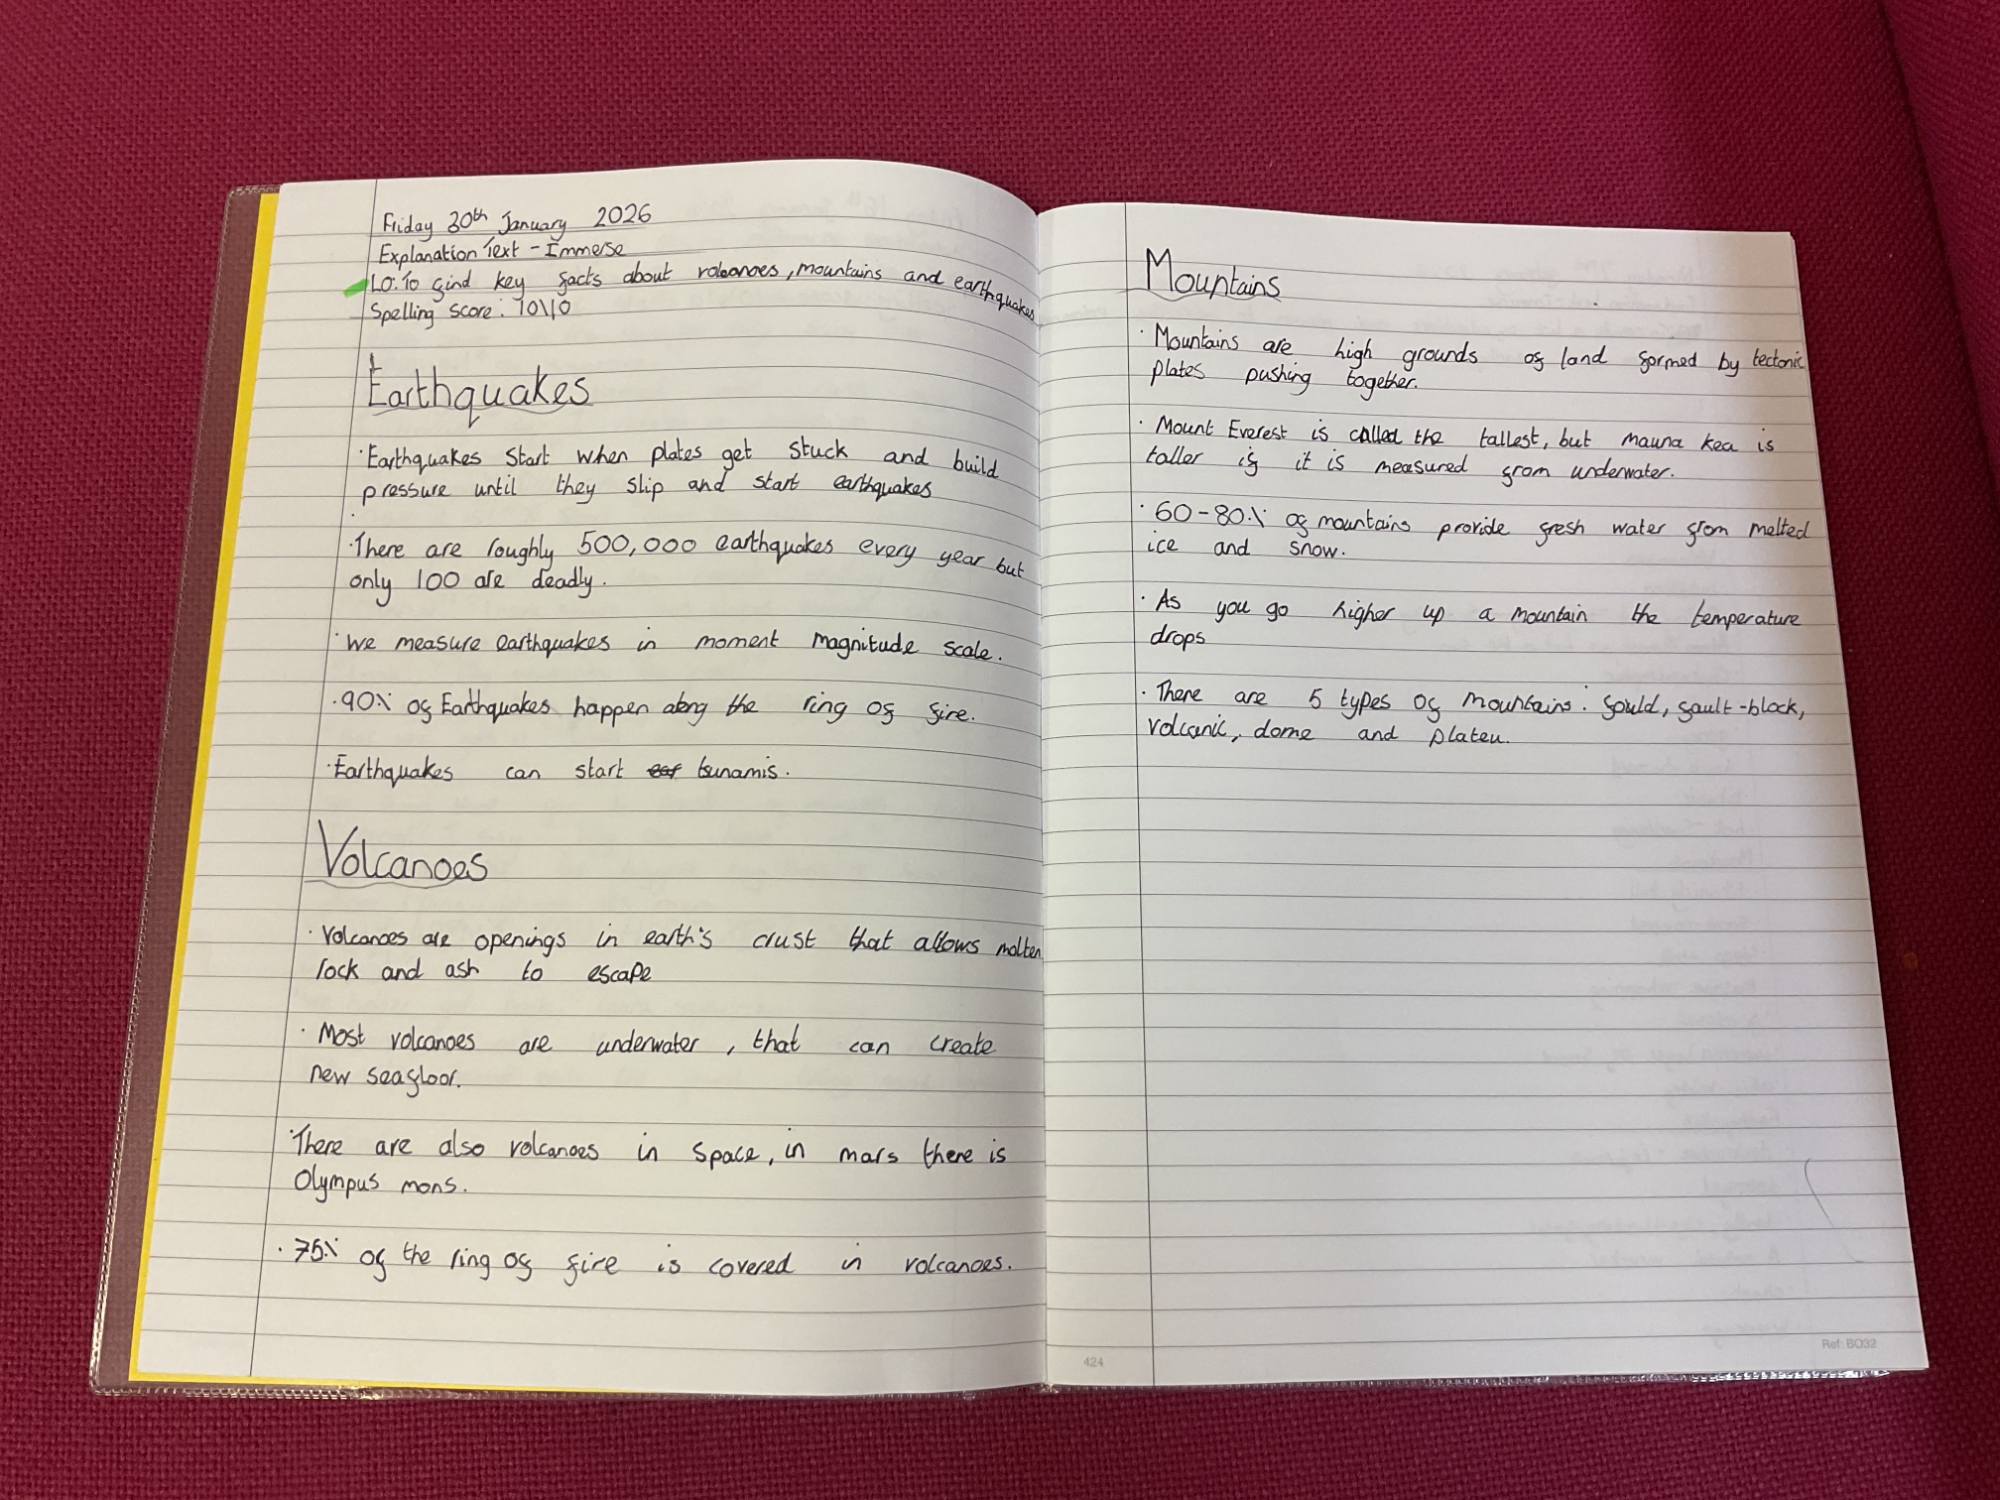 Friday 30th January 2026
Explanation Text - Immerse
LO: To find key facts about volcanoes, mountains and earthquakes
Spelling score: 10\10
Earthquakes
· Earthquakes start when plates get stuck and build
pressure until they slip and start earthquakes
· There are roughly 500,000 earthquakes every year but
only 100 are deadly.
· We measure earthquakes in moment magnitude scale.
· 90% of Earthquakes happen along the ring of fire.
· Earthquakes can start ear tsunamis.
Volcanoes
· Volcanoes are openings in earth's crust that allows molten
rock and ash to escape
· Most volcanoes are underwater, that can create
new seafloor.
· There are also volcanoes in space, in mars there is
Olympus mons.
· 75% of the ring of fire is covered in volcanoes.
Mountains
· Mountains are high grounds of land formed by tectonic
plates pushing together.
· Mount Everest is called the tallest, but mauna kea is
taller if it is measured from underwater.
· 60-80% of mountains provide fresh water from melted
ice and snow.
· As you go higher up a mountain the temperature
drops
· There are 5 types of mountains: fould, fault-block,
volcanic, dome and plateu.
424
Ref: BO32